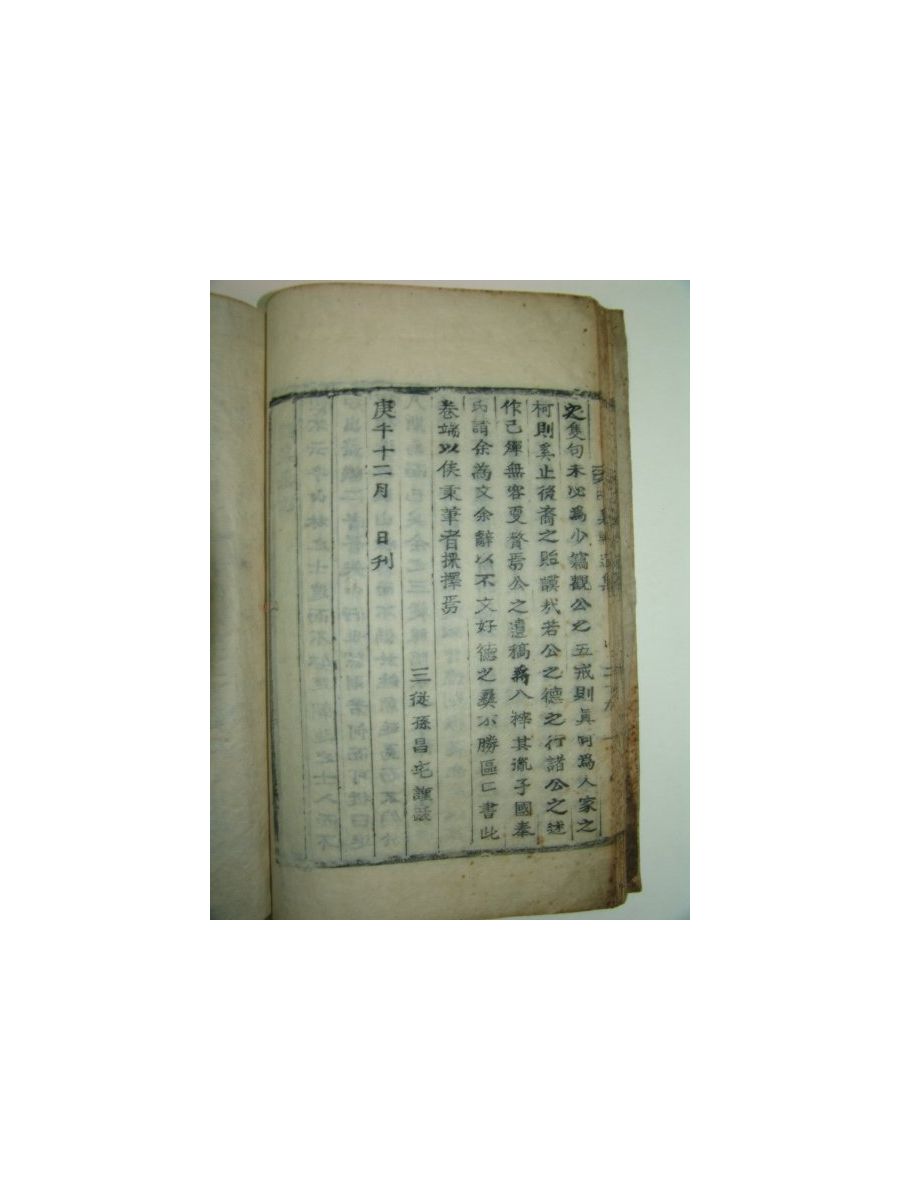 文隻句未必爲少篇觀公之五戒則眞可爲人家之
柯則奚止後裔之貽謨㢤若公之德之行諸公之述
作已殫無容更贅焉公之遺稿將入梓其胤子國奉
氏請余爲文余辭以不文好德之彝不勝區〻書此
卷端以俟秉筆者採擇焉
三從孫昌宅謹識
庚午十二月 日刊